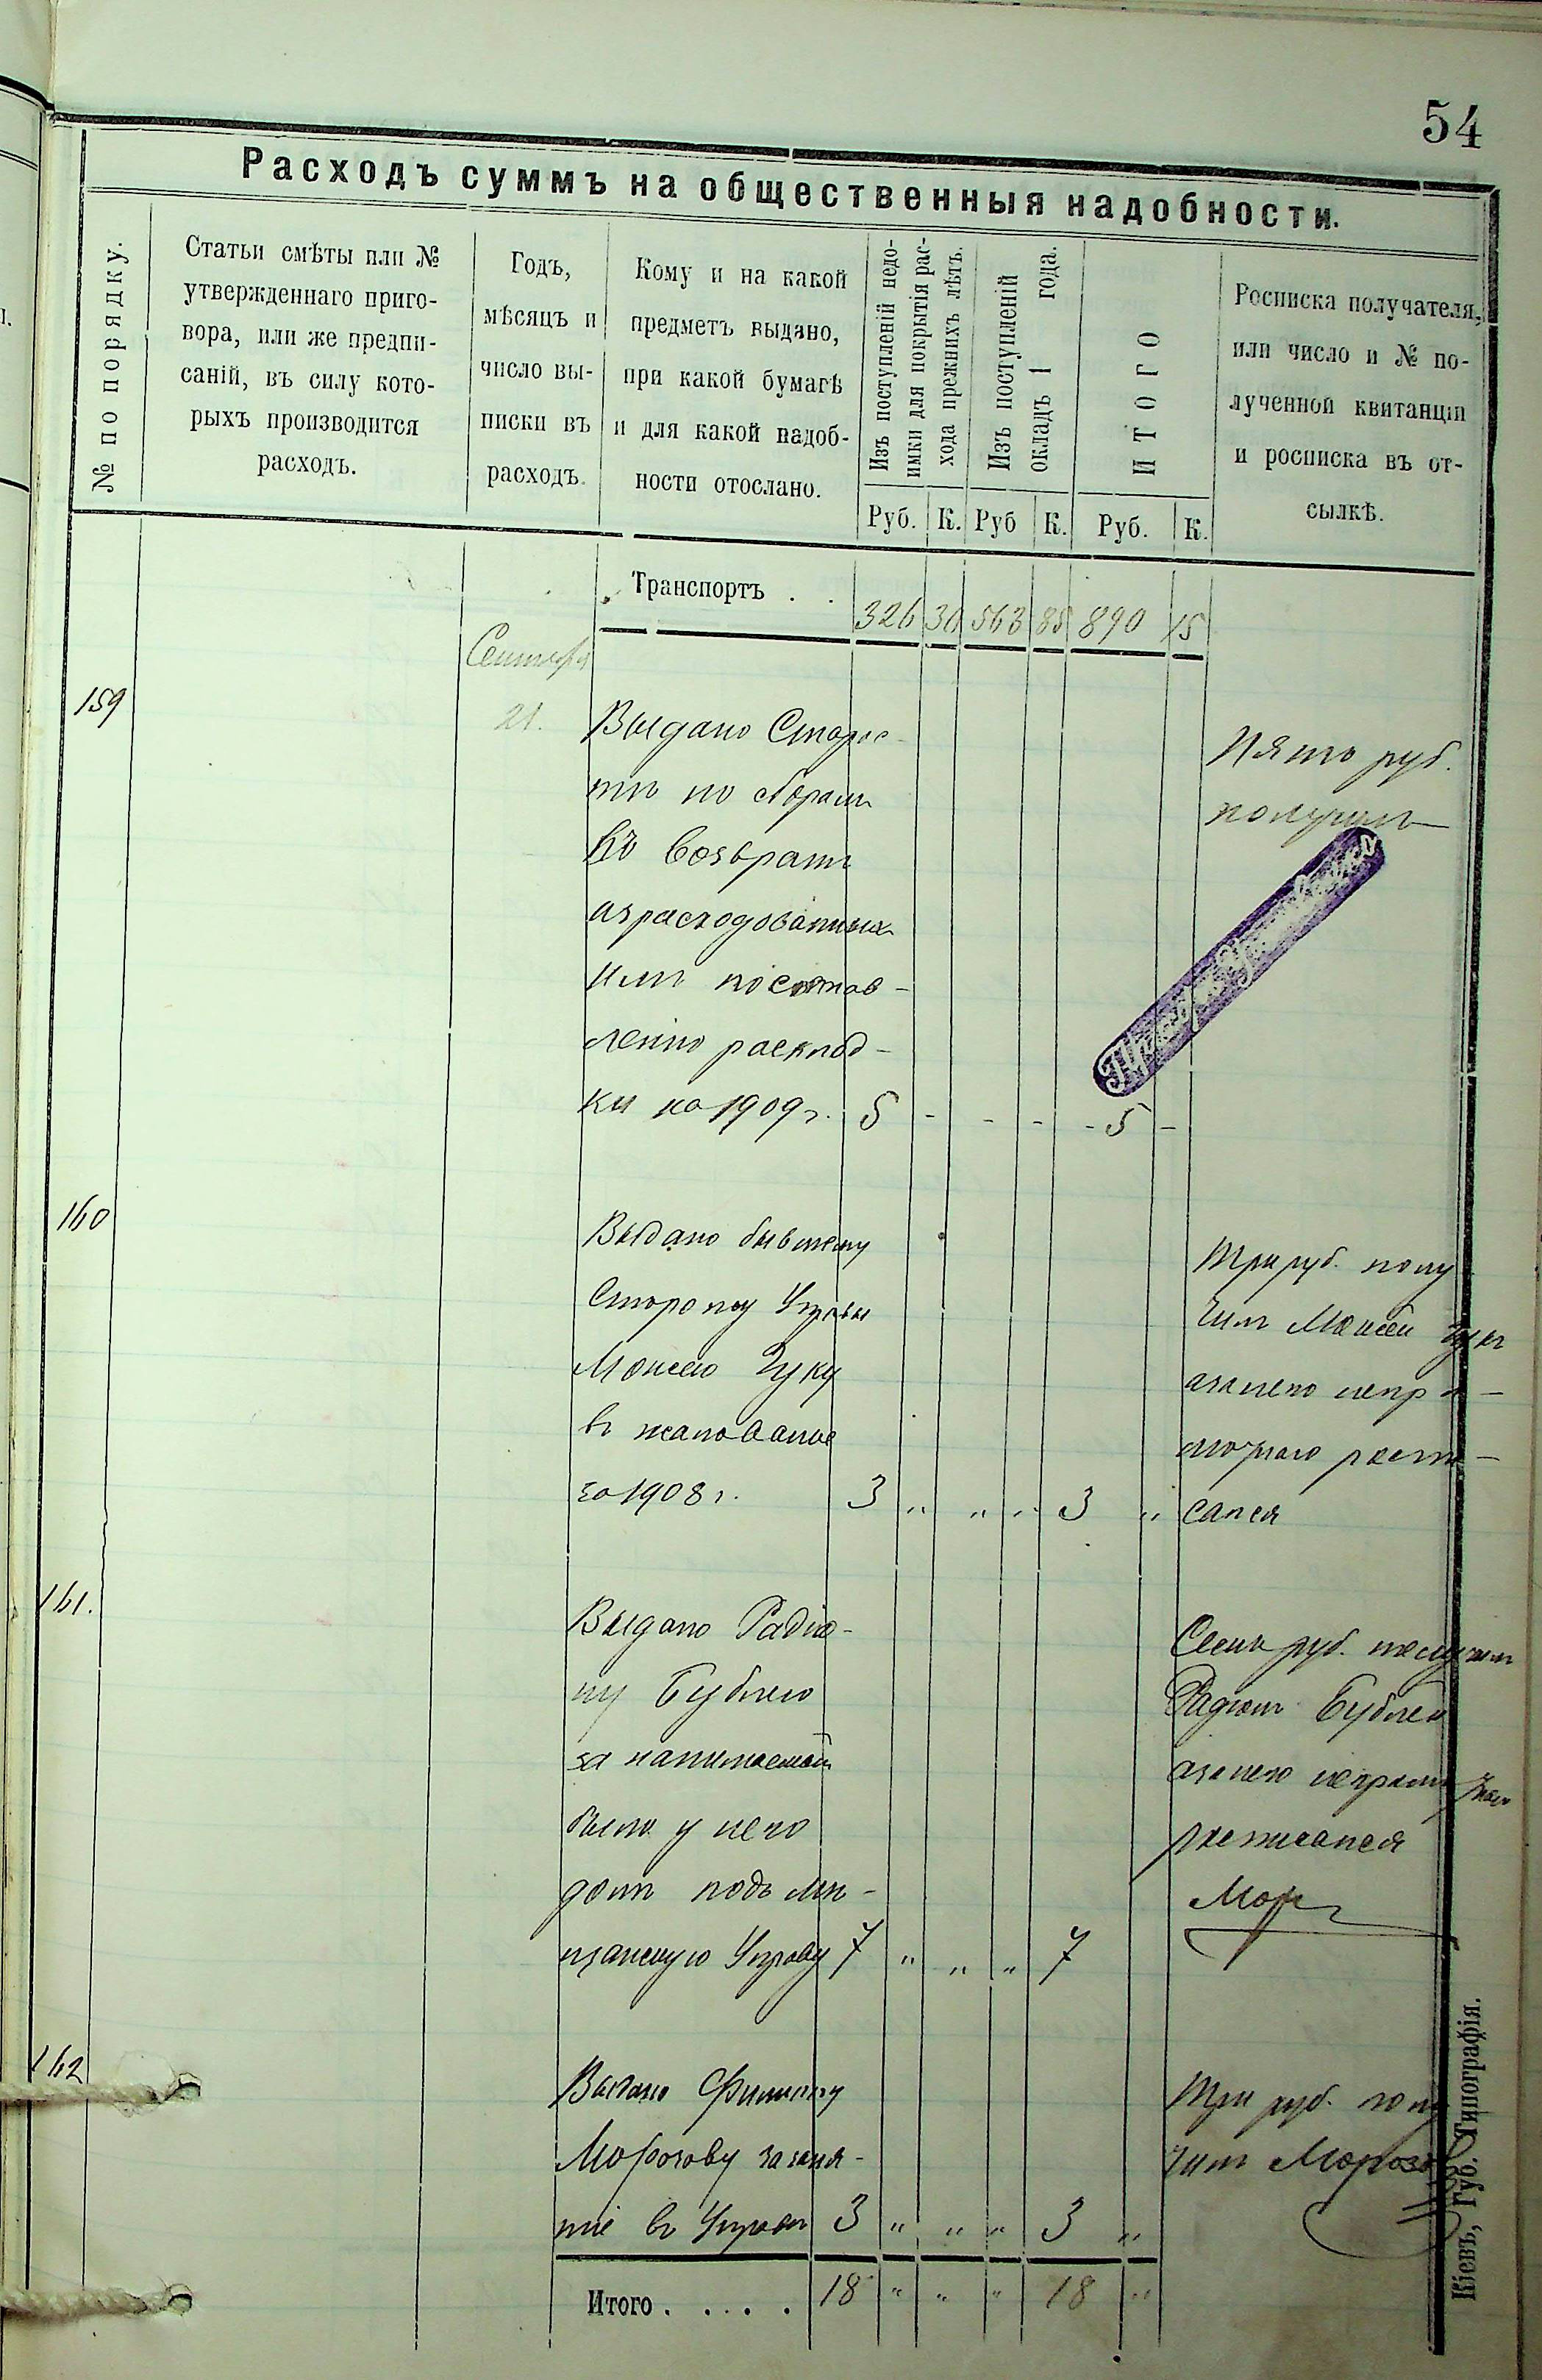 54
Расходъ суммъ на общественныя надобности.
№ по порядку.
Статьи смѣты или №
утвержденнаго приго-
вора, или же предпи-
саній, въ силу кото-
рыхъ производится
расходъ.
Годъ,
мѣсяцъ и
число вы-
писки въ
расходъ.
Кому и на какой
предметъ выдано,
при какой бумагѣ
и для какой надоб-
ности отослано.
Изъ поступленій недо-
имки для покрытія рас-
хода прежнихъ лѣтъ.
Изъ поступленій
окладъ 1 года.
ИТОГО
Росписка получателя,
или число и № по-
лученной квитанціи
и росписка въ от-
сылкѣ.
Руб. К. Руб К. Руб. К.
Транспортъ . . 326 30 563 85 890 15
Сентября
159
21.
Выдано Старос-
тѣ по сборамъ
въ возвратъ
израсходованныхъ
имъ по состав-
ленію расклад-
ки на 1909 г. 5 - - - - 5 -
Пять руб.
получилъ
160
Выдано бывшему
Сторожу Управы
Моисею Зуку
въ жалованье
за 1908 г. 3 " " " 3 "
Три руб. полу
чилъ Моисей Зукъ
а за него негра-
мотнаго распи-
сался
161.
Выдано Радіо-
ну Бублею
за нанимаемый
были у него
домъ подъ мѣ-
щанскую Управу 7 " " " 7
Семь руб. получилъ
Радіонъ Бублей
а за него неграмотнаго
расписался
Мор
162
Выдано Филиппу
Морозову за заня-
тіе въ Управѣ 3 " " " 3 "
Три руб. полу
чилъ Морозов
Итого . . . . . 18 " " " 18 "
Кіевъ, Губ. Типографія.